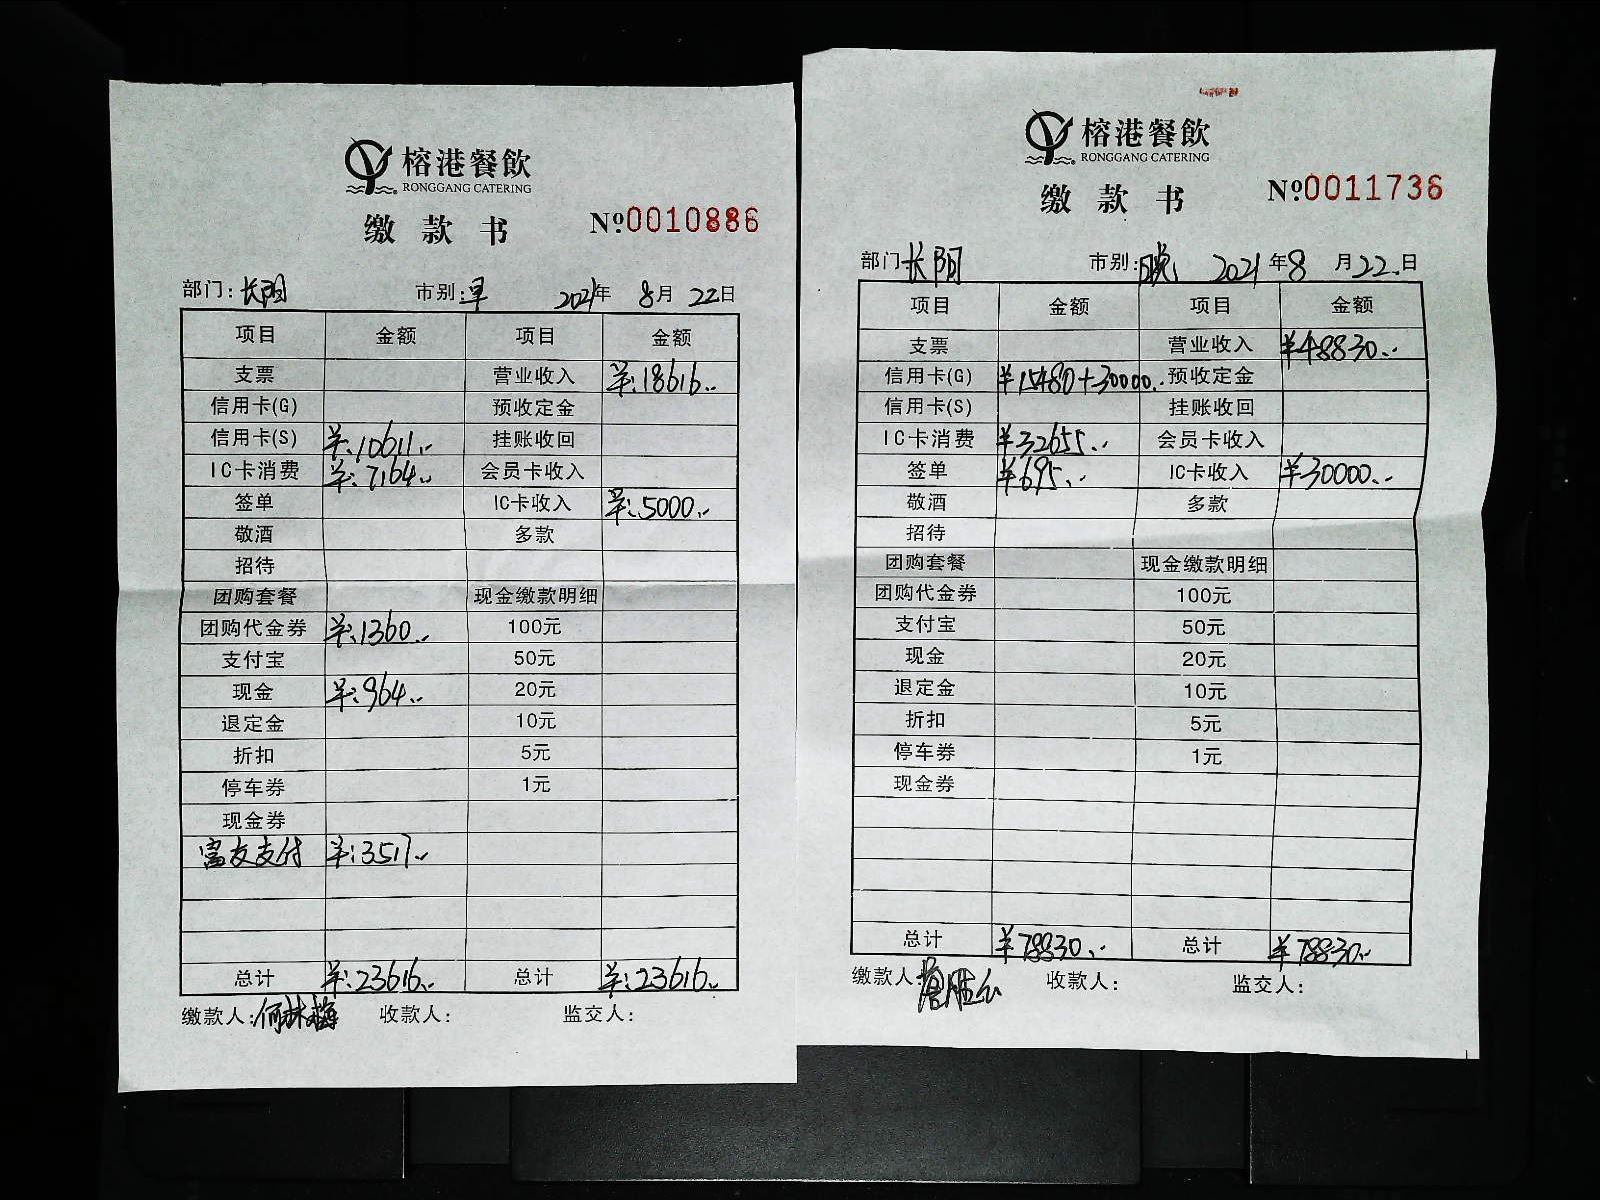 榕港餐飲
RONGGANG CATERING
缴款书 №0010886
部门：长阳 市别：早 2021年 8月 22日
项目 金额 项目 金额
支票 营业收入 ¥:18616..
信用卡(G) 预收定金
信用卡(S) ¥:10611.. 挂账收回
IC卡消费 ¥:7164.. 会员卡收入
签单 IC卡收入 ¥:5000..
敬酒 多款
招待
团购套餐 现金缴款明细
团购代金券 ¥:1360.. 100元
支付宝 50元
现金 ¥:964.. 20元
退定金 10元
折扣 5元
停车券 1元
现金券
富友支付 ¥:3517..
总计 ¥:23616.. 总计 ¥:23616..
缴款人：何林梅 收款人： 监交人：
榕港餐飲
RONGGANG CATERING
缴款书 №0011736
部门 长阳 市别：晚 2021年8月22.日
项目 金额 项目 金额
支票 营业收入 ¥48830..
信用卡(G) ¥15480+30000.. 预收定金
信用卡(S) 挂账收回
IC卡消费 ¥32655.. 会员卡收入
签单 ¥695.. IC卡收入 ¥30000..
敬酒 多款
招待
团购套餐 现金缴款明细
团购代金券 100元
支付宝 50元
现金 20元
退定金 10元
折扣 5元
停车券 1元
现金券
总计 ¥78830.. 总计 ¥78830..
缴款人： 收款人： 监交人：